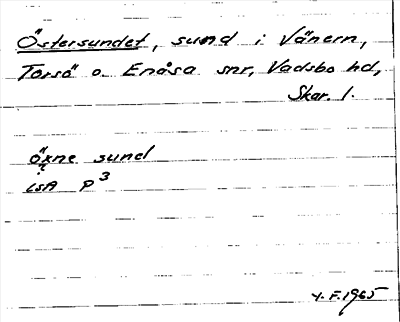 Östersundet, sund i Vänern,
Torsö o. Enåsa snr, Vadsbo hd,
Skar. l.
öxne sund
LSA P3
Y.F. 1965